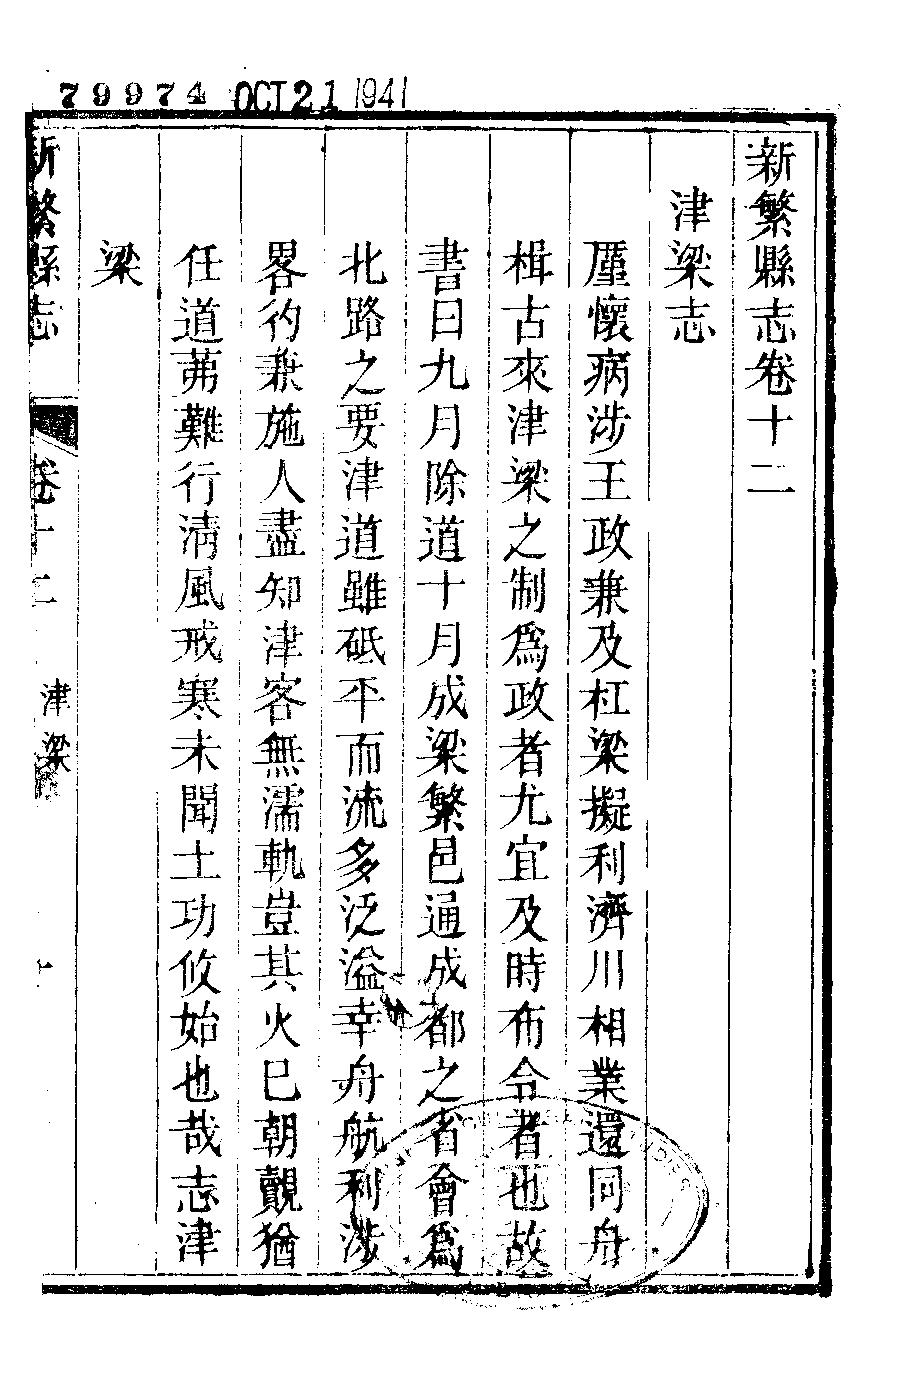 79974 OCT 21 1941
新繁縣志卷十二
津梁志
廑懷病涉王政兼及杠梁擬利濟川相業還同舟
楫古來津梁之制爲政者尤宜及時布令者也故
書曰九月除道十月成梁繁邑通成都之省會爲
北路之要津道雖砥平而流多泛溢幸舟航利涉
畧彴兼施人盡知津客無濡軌豈其火巳朝覿猶
任道茀難行淸風戒寒未聞土功攸始也哉志津
梁
新繁縣志
卷十二
津梁